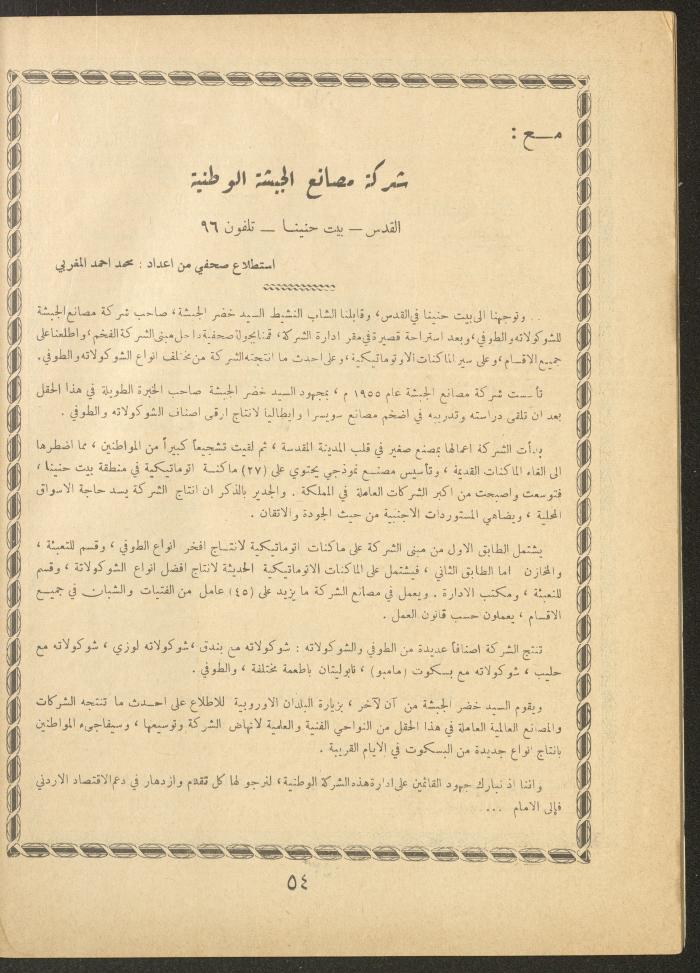 مـــع :
شركة مصانع الجبشة الوطنية
القدس — بيت حنينــا — تلفون ٩٦
استطلاع صحفي من اعداد : محمد احمد المغربي
. . وتوجهنا الى بيت حنينا في القدس، وقابلنا الشاب النشيط السيد خضر الجبشة، صاحب شركة مصانع الجبشة
للشوكولاته والطوفي، وبعد استراحة قصيرة في مقر ادارة الشركة، قمنا بجولة صحفية داخل مبنى الشركة الفخم، واطلعنا على
جميع الاقسام، وعلى سير الماكنات الاوتوماتيكية، وعلى احدث ما انتجته الشركة من مختلف انواع الشوكولاته والطوفي.
تأسست شركة مصانع الجبشة عام ١٩٥٥ م ، بمجهود السيد خضر الجبشة صاحب الخبرة الطويلة في هذا الحقل
بعد ان تلقى دراسته وتدريبه في اضخم مصانع سويسرا وايطاليا لانتاج ارقى اصناف الشوكولاته والطوفي .
بدأت الشركة اعمالها بمصنع صغير في قلب المدينة المقدسة ، ثم لقيت تشجيعاً كبيراً من المواطنين ، مما اضطرها
الى الغاء الماكنات القديمة ، وتأسيس مصنع نموذجي يحتوي على (٢٧) ماكنــة اتوماتيكية في منطقة بيت حنينا ،
فتوسعت واصبحت من اكبر الشركات العاملة في المملكة . والجدير بالذكر ان انتاج الشركة يسد حاجة الاسواق
المحلية ، ويضاهي المستوردات الاجنبية من حيث الجودة والاتقان .
يشتمل الطابق الاول من مبنى الشركة على ماكنات اتوماتيكية لانتــاج افخر انواع الطوفي ، وقسم للتعبئة ،
والمخازن اما الطابق الثاني ، فيشتمل على الماكنات الاتوماتيكية الحديثة لانتاج افضل انواع الشوكولاتة ، وقسم
للتعبئة ، ومكتب الادارة . ويعمل في مصانع الشركة ما يزيد على (٤٥) عامل من الفتيات والشبان في جميــع
الاقسام ، يعملون حسب قانون العمل .
تنتج الشركة اصنافاً عديدة من الطوفي والشوكولاته : شوكولاته مع بندق ، شوكولاته لوزي ، شوكولاته مع
حليب ، شوكولاته مع بسكوت ( مامبو ) ، نابوليتان باطعمة مختلفة ، والطوفي .
ويقوم السيد خضر الجبشة من آن لآخر ، بزيارة البلدان الاوروبية للاطلاع على احــدث ما تنتجه الشركات
والمصانع العالمية العاملة في هذا الحقل من النواحي الفنية والعلمية لانهاض الشركة وتوسيعها ، وسيفاجىء المواطنين
بانتاج انواع جديدة من البسكوت في الايام القريبة .
واننا اذ نبارك جهود القائمين على ادارة هذه الشركة الوطنية ، لنرجو لها كل تقدم وازدهار في دعم الاقتصاد الاردني
فإلى الامام ...
٥٤